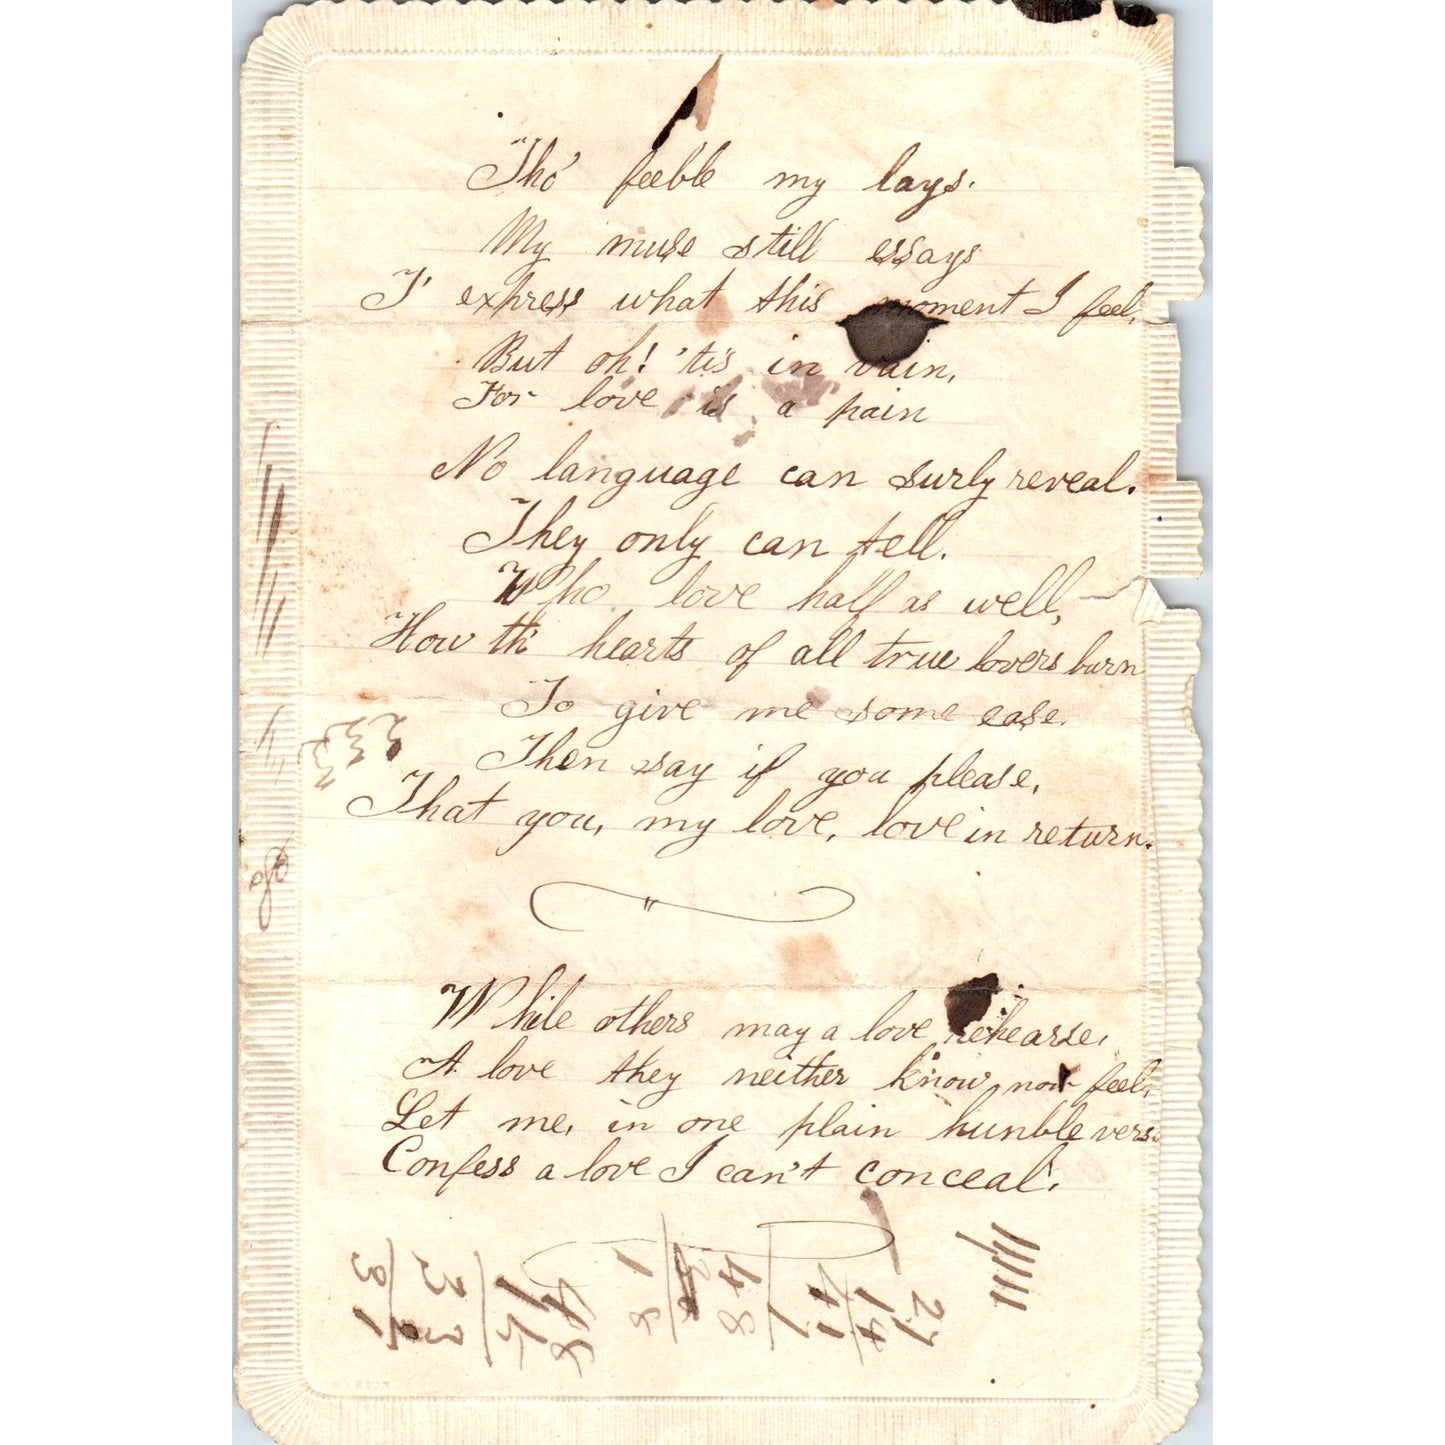 Tho' feeble my lays.
My muse still essays
T' express what this moment I feel,
But oh! 'tis in vain,
For love is a pain
No language can surly reveal.
They only can tell.
Who love half as well,
How th' hearts of all true lovers burn
To give me some ease.
Then say if you please,
That you, my love, love in return.
While others may a love rehearse,
A love they neither know, nor feel,
Let me, in one plain hunble vers
Confess a love I can't conceal.